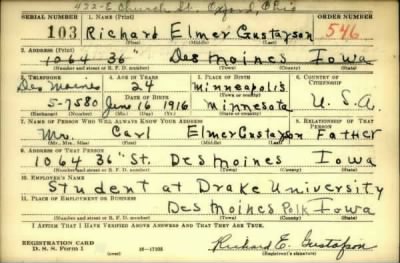 422-E Church St., Oxford, Ohio
SERIAL NUMBER 1. NAME (Print) ORDER NUMBER
103 Richard Elmer Gustafson 546
(First) (Middle) (Last)
2. ADDRESS (Print)
1064 36" Des Moines Iowa
(Number and street or R. F. D. number) (Town) (County) (State)
3. TELEPHONE 4. AGE IN YEARS 5. PLACE OF BIRTH 6. COUNTRY OF CITIZENSHIP
Des Moines 24 Minneapolis
DATE OF BIRTH (Town or county)
5-7580 June 16 1916 Minnesota U. S. A.
(Exchange) (Number) (Mo.) (Day) (Yr.) (State or country)
7. NAME OF PERSON WHO WILL ALWAYS KNOW YOUR ADDRESS 8. RELATIONSHIP OF THAT PERSON
Mr. Carl Elmer Gustafson Father
(Mr., Mrs., Miss) (First) (Middle) (Last)
9. ADDRESS OF THAT PERSON
1064 36" St. Des Moines Iowa
(Number and street or R. F. D. number) (Town) (County) (State)
10. EMPLOYER'S NAME
Student at Drake University
11. PLACE OF EMPLOYMENT OR BUSINESS
Des Moines Polk Iowa
(Number and street or R. F. D. number) (Town) (County) (State)
I AFFIRM THAT I HAVE VERIFIED ABOVE ANSWERS AND THAT THEY ARE TRUE.
REGISTRATION CARD
D. S. S. Form 1 16-17105 Richard E. Gustafson
(Registrant's signature)